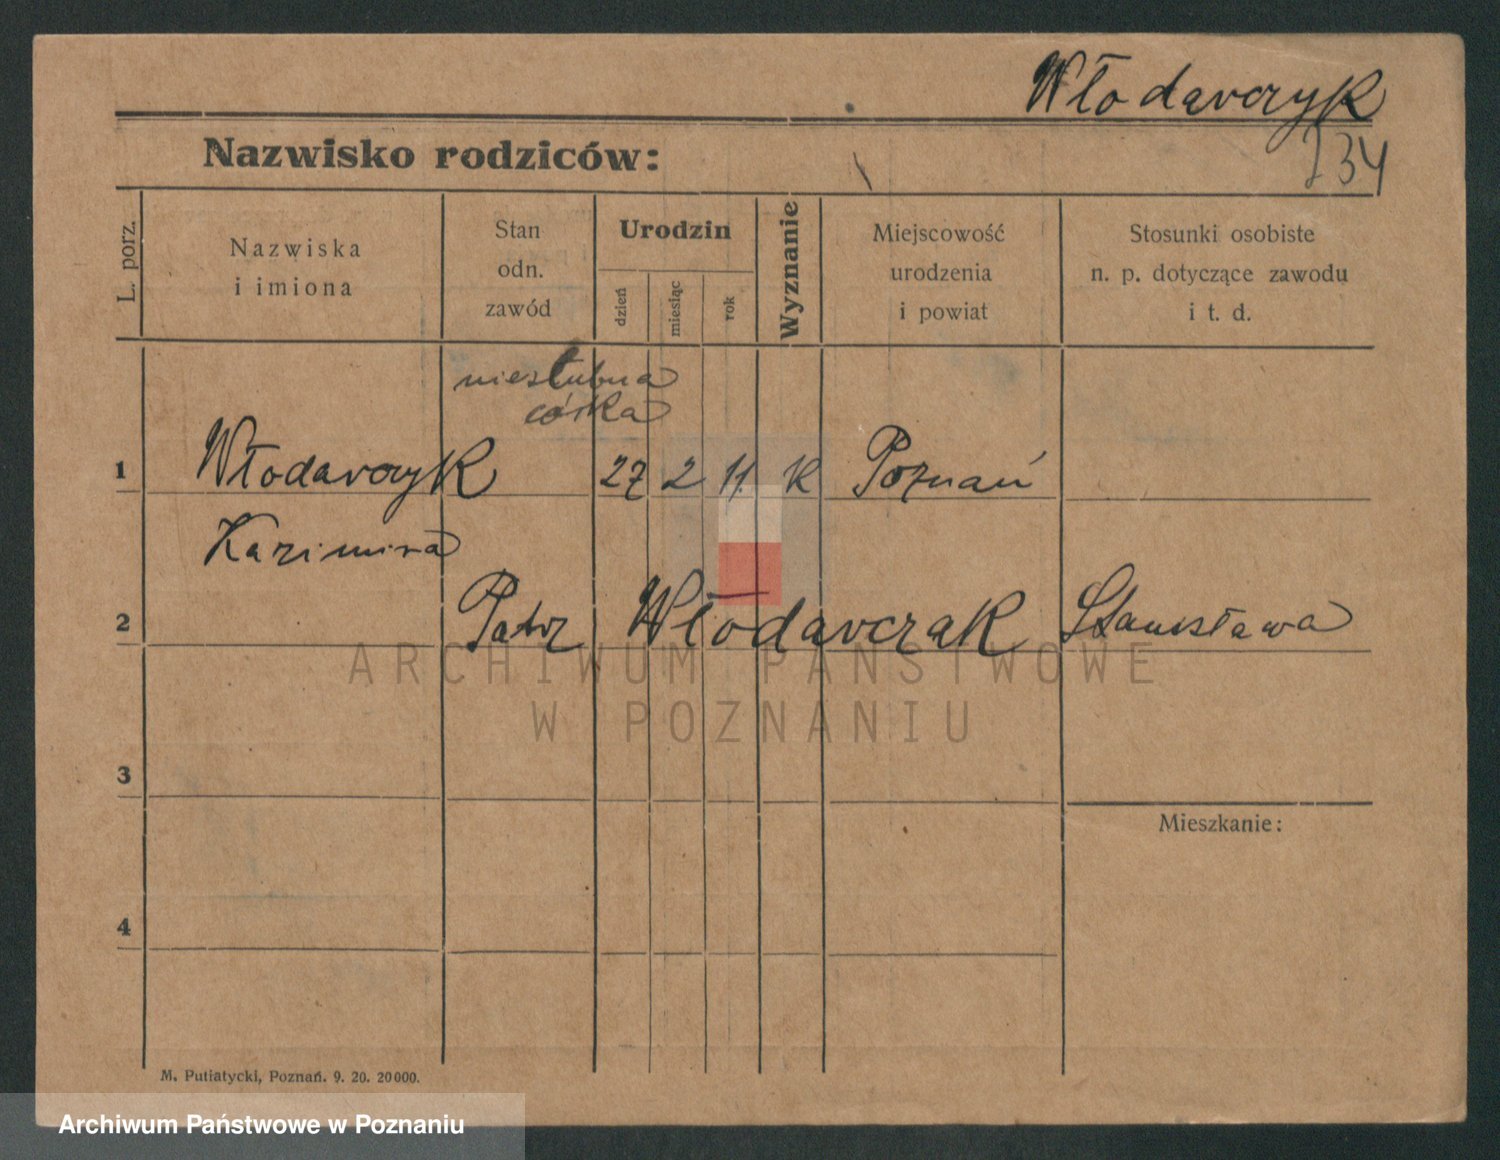 Włodarczyk
234
Nazwisko rodziców:
L. porz.
Nazwiska
i imiona
Stan
odn.
zawód
Urodzin
dzień
miesiąc
rok
Wyznanie
Miejscowość
urodzenia
i powiat
Stosunki osobiste
n. p. dotyczące zawodu
i t. d.
nieślubna
córka
1 Włodarczyk 27 2 11. K Poznań
Kazimira
2 Patrz Włodarczak Stanisława
ARCHIWUM PAŃSTWOWE
W POZNANIU
3
Mieszkanie:
4
M. Putiatycki, Poznań. 9. 20. 20000.
Archiwum Państwowe w Poznaniu